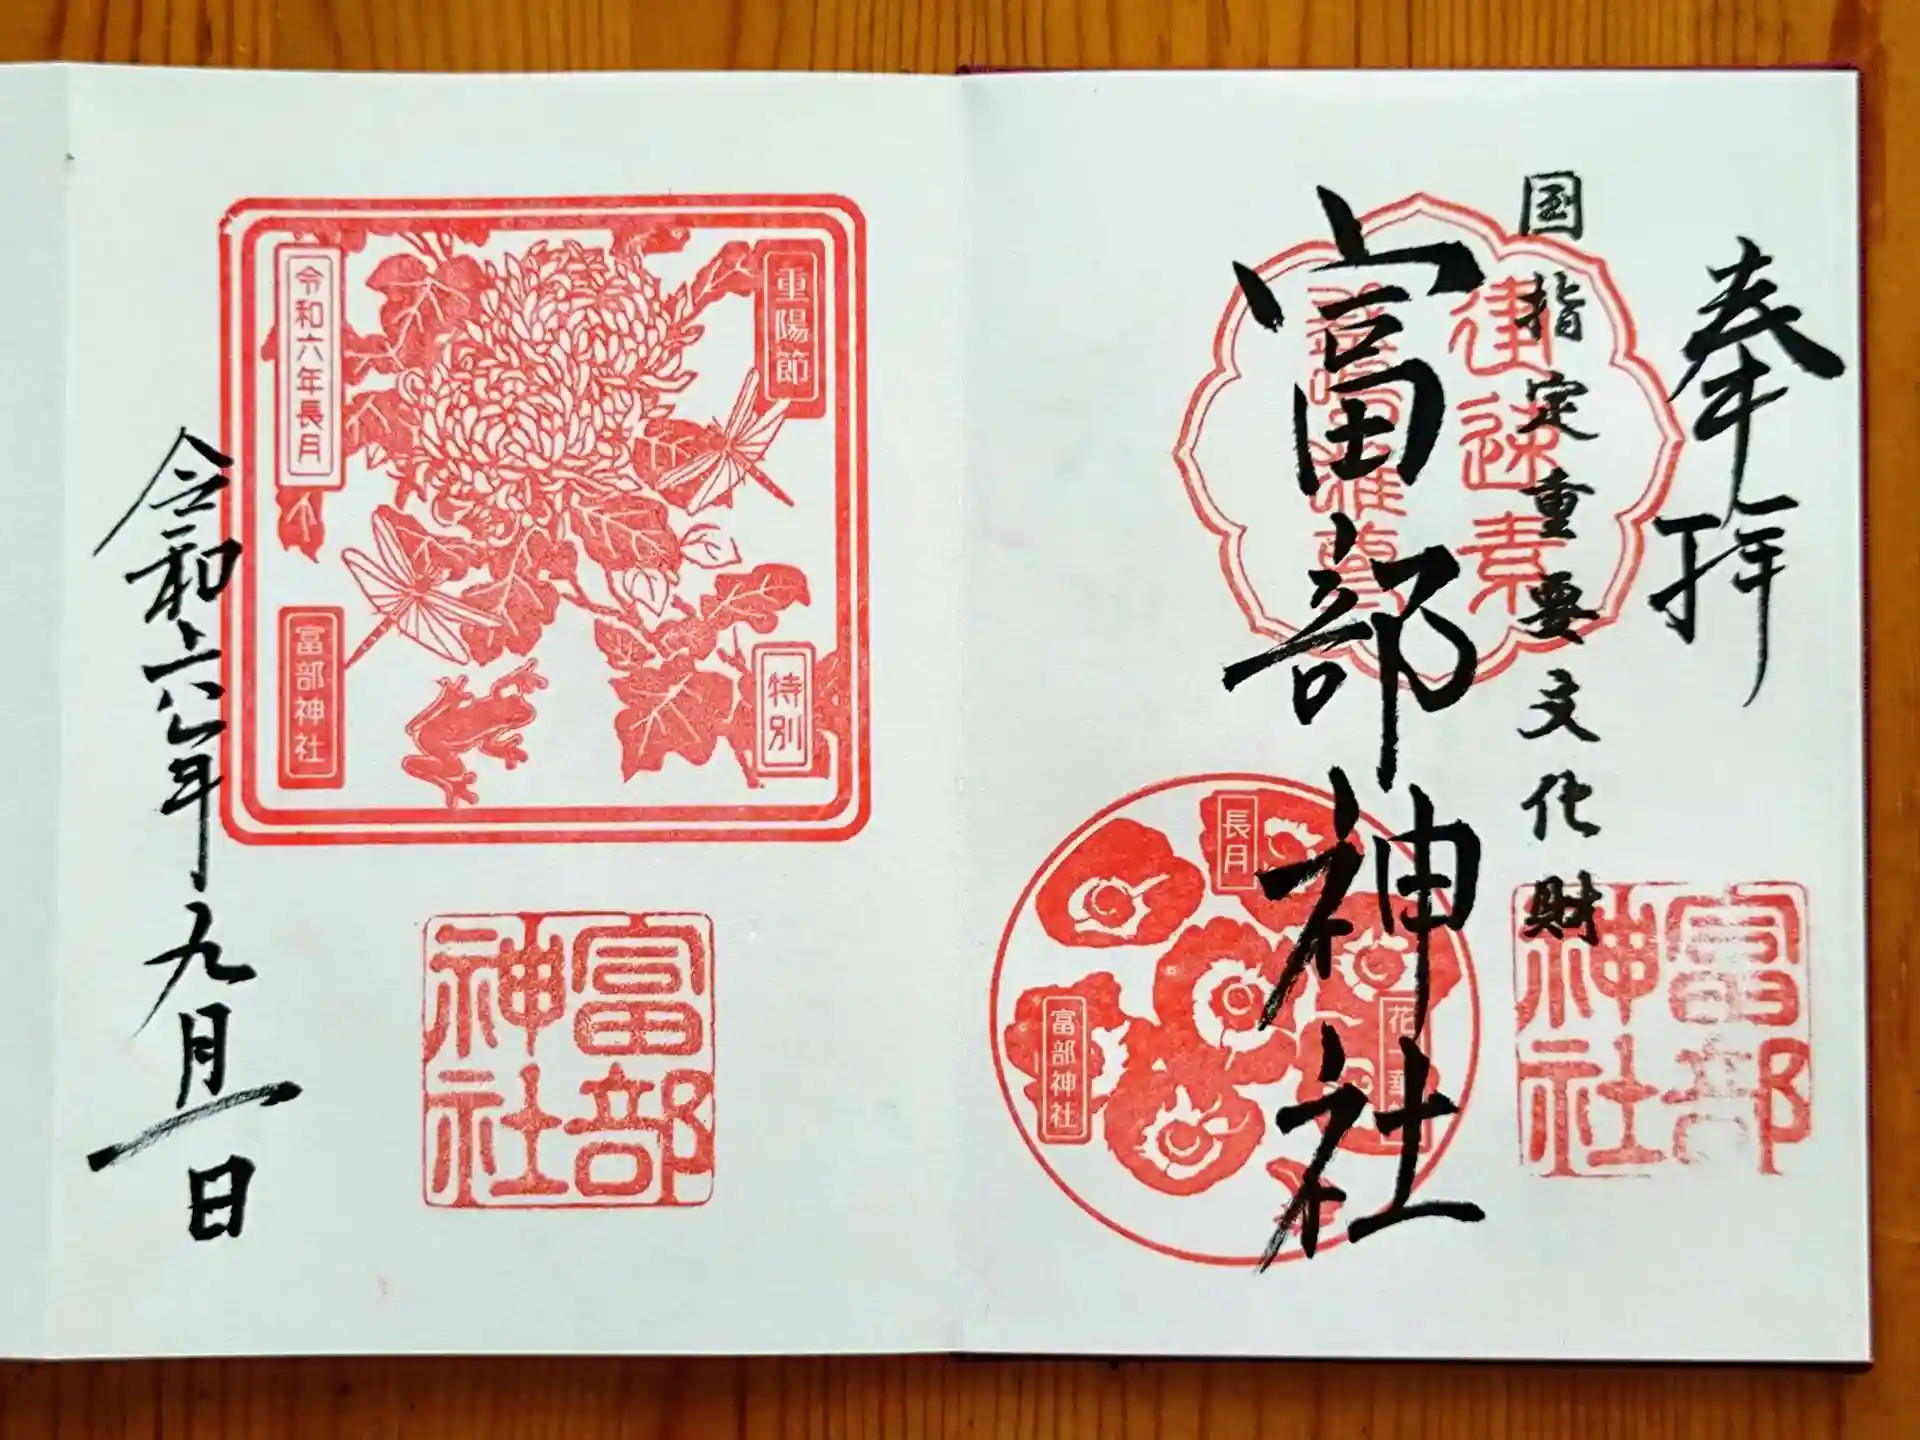 奉拝
国指定重要文化財
建速素
富部神社
富部
神社
長月
花一華
富部神社
重陽節
特別
令和六年長月
富部神社
富部
神社
令和六年九月一日